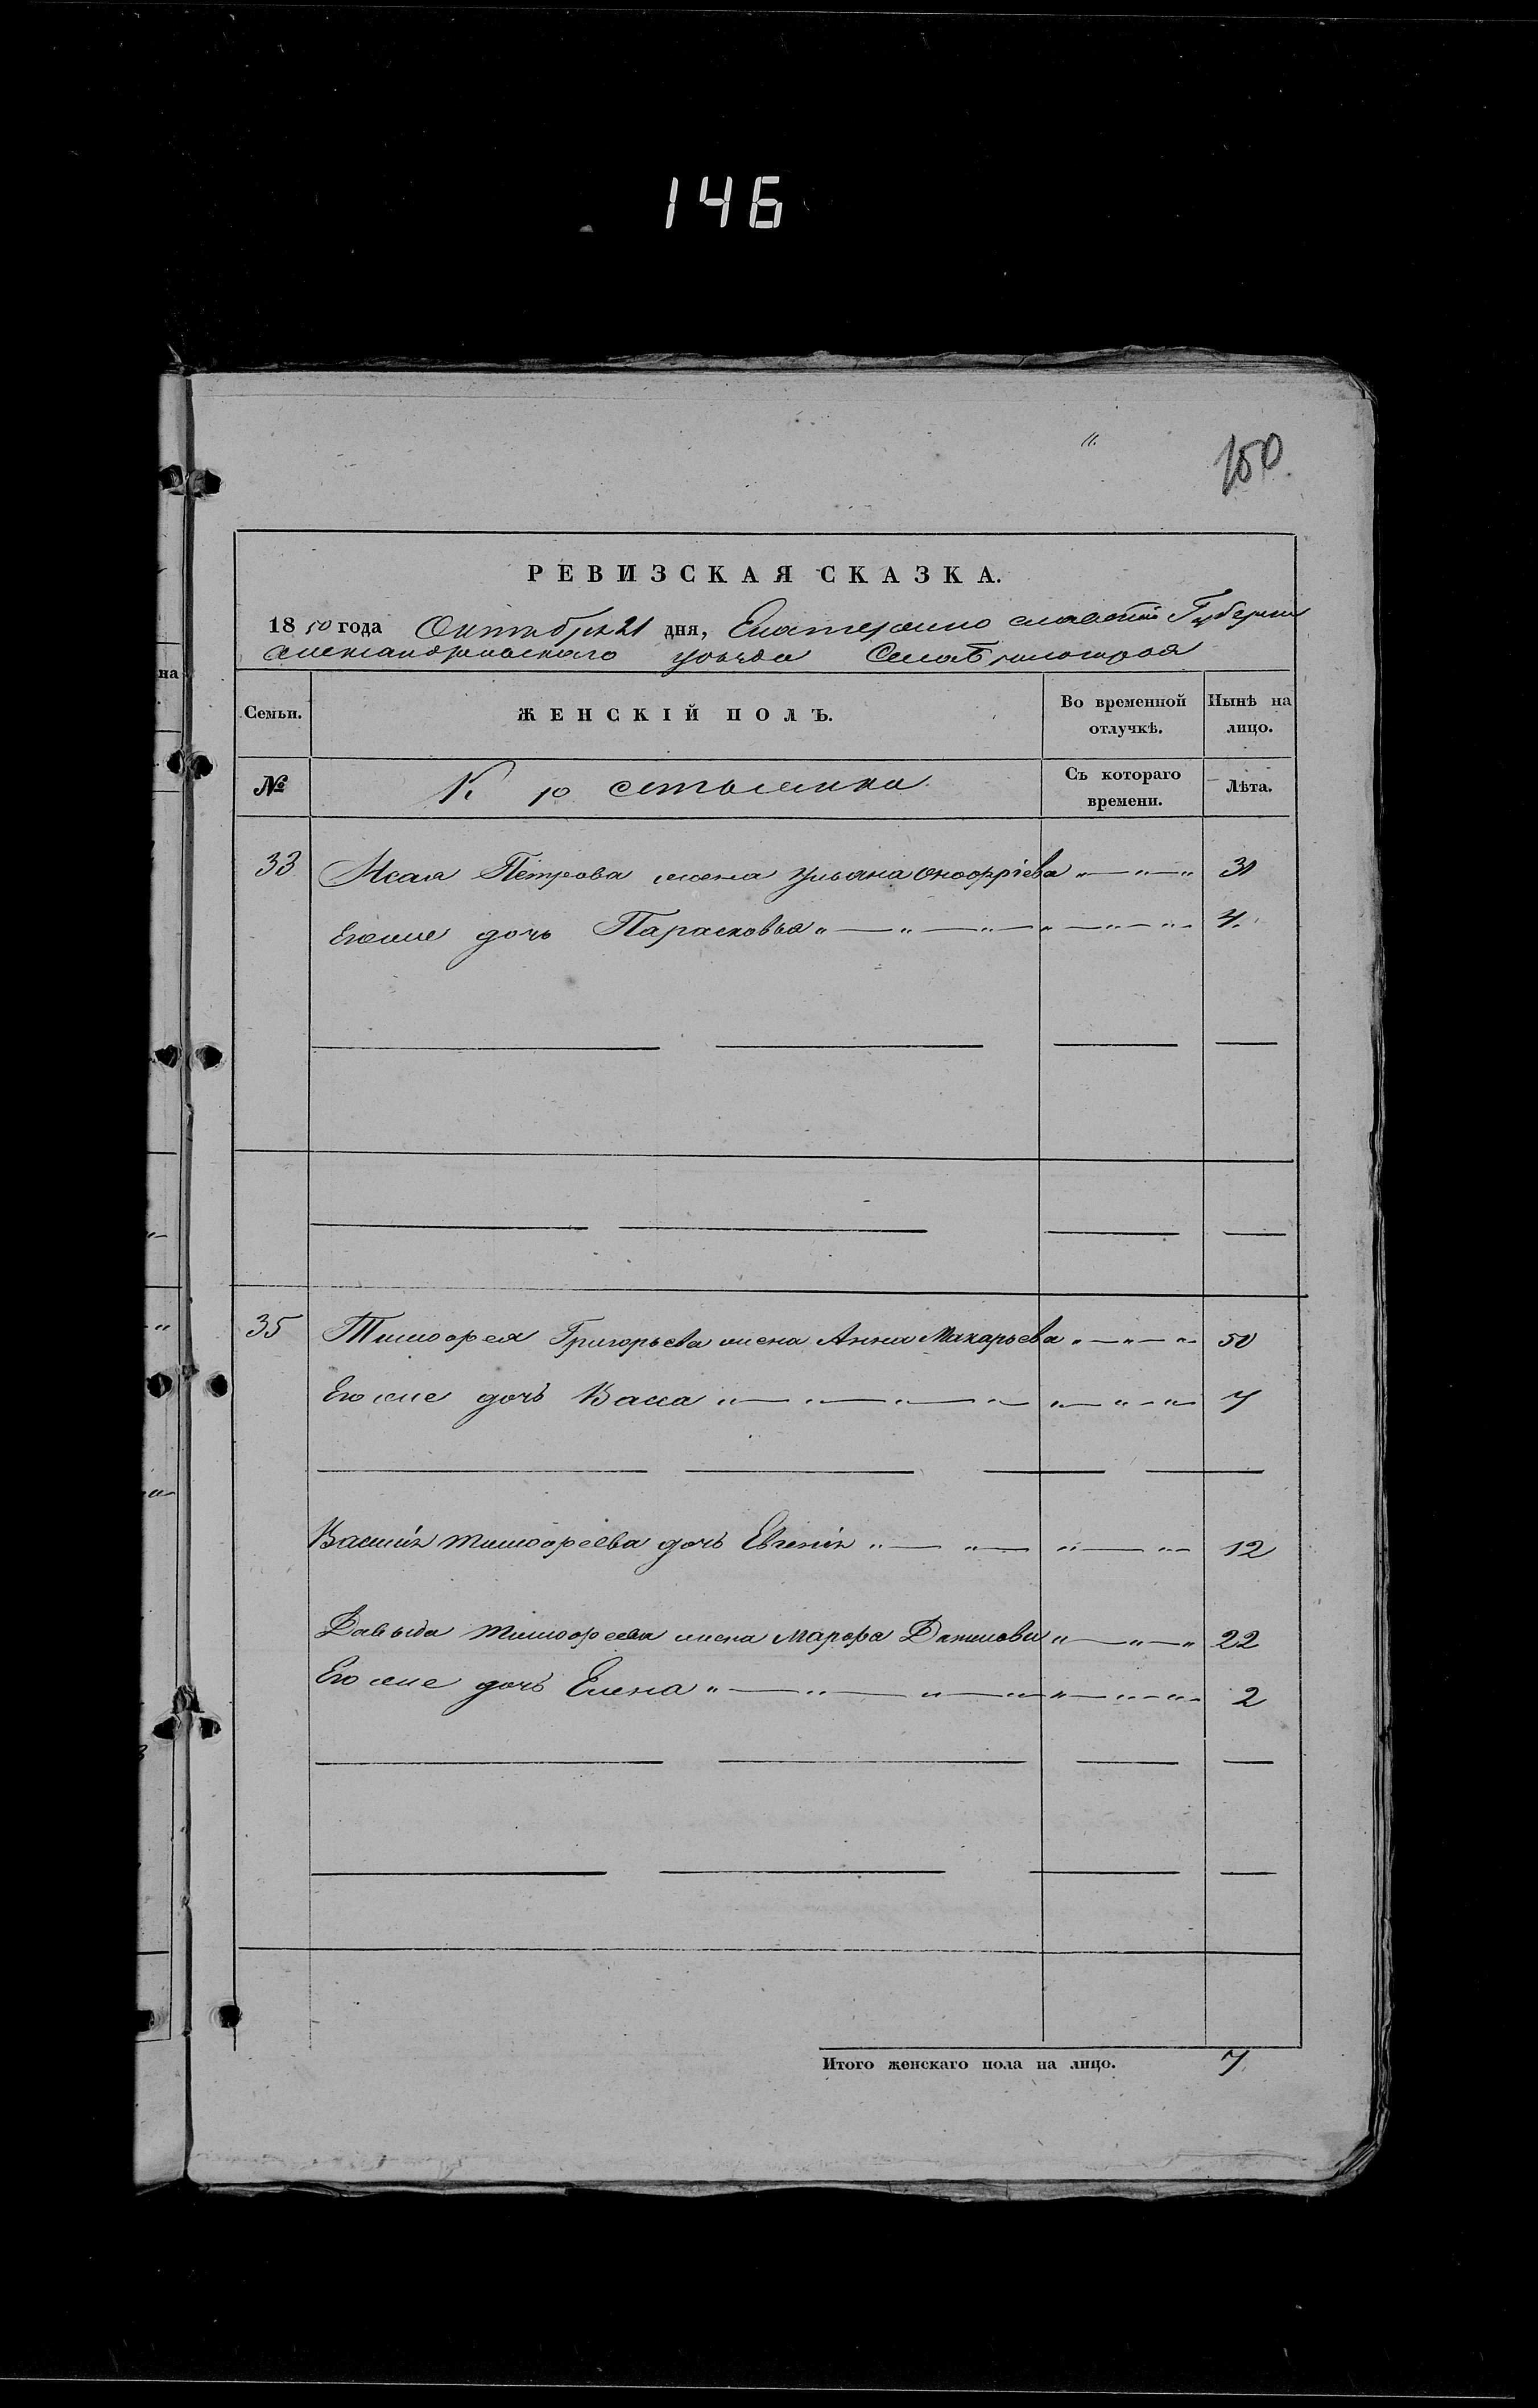 146
150
РЕВИЗСКАЯ СКАЗКА.
1850 года Октября 21 дня, Екатеринославской Губернии
Александровскаго уѣзда Села
Семьи. ЖЕНСКІЙ ПОЛЪ. Во временной отлучкѣ. Нынѣ на лицо.
№ Крестьянка Съ котораго времени. Лѣта.
33 Исая Петрова жена Ульяна Оноффріева " — " — " 31
Его же дочь Парасковья " — " — " — " — " — " — " 4.
35 Тимофея Григорьева жена Анна Макарьева " — " — " 50
Его же дочь Васса " — " — " — " — " — " — " 7
Василія Тимофеева дочь Евгенія " — " — " — " — 12
Давыда Тимофеева жена Марфа Данилова " — " — " 22
Его же дочь Елена " — " — " — " — " — " — " 2
Итого женскаго пола на лицо. 7
на